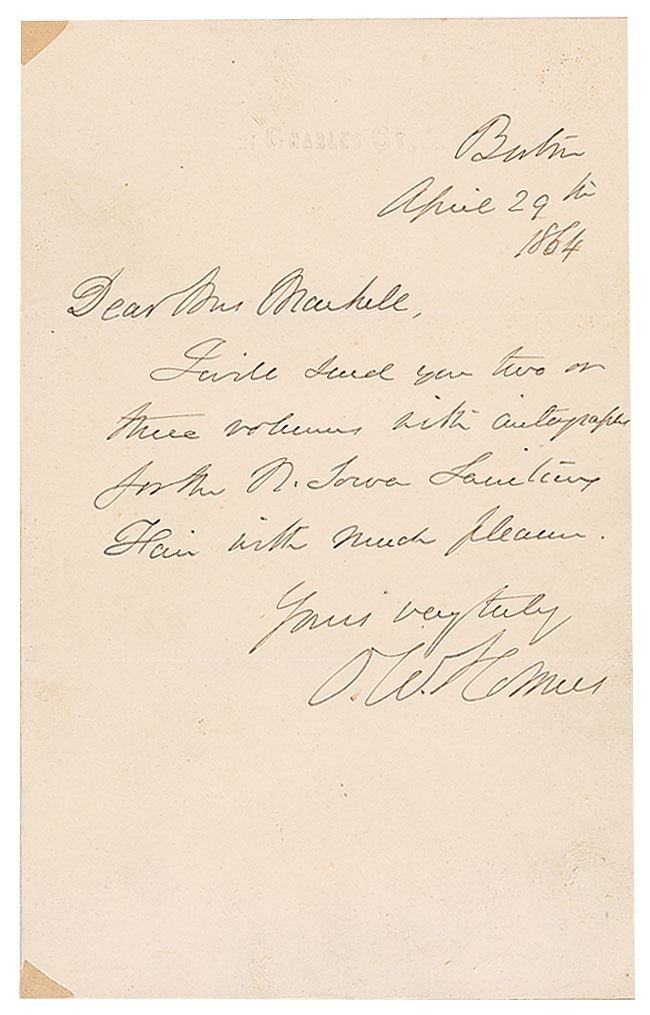 Charles St.
Boston
April 29th
1864
Dear Mrs
I will send you two or
three volumes with autographs
for the N. Iowa Sanitary
Fair with much pleasure.
Yours very truly
O. W. Holmes